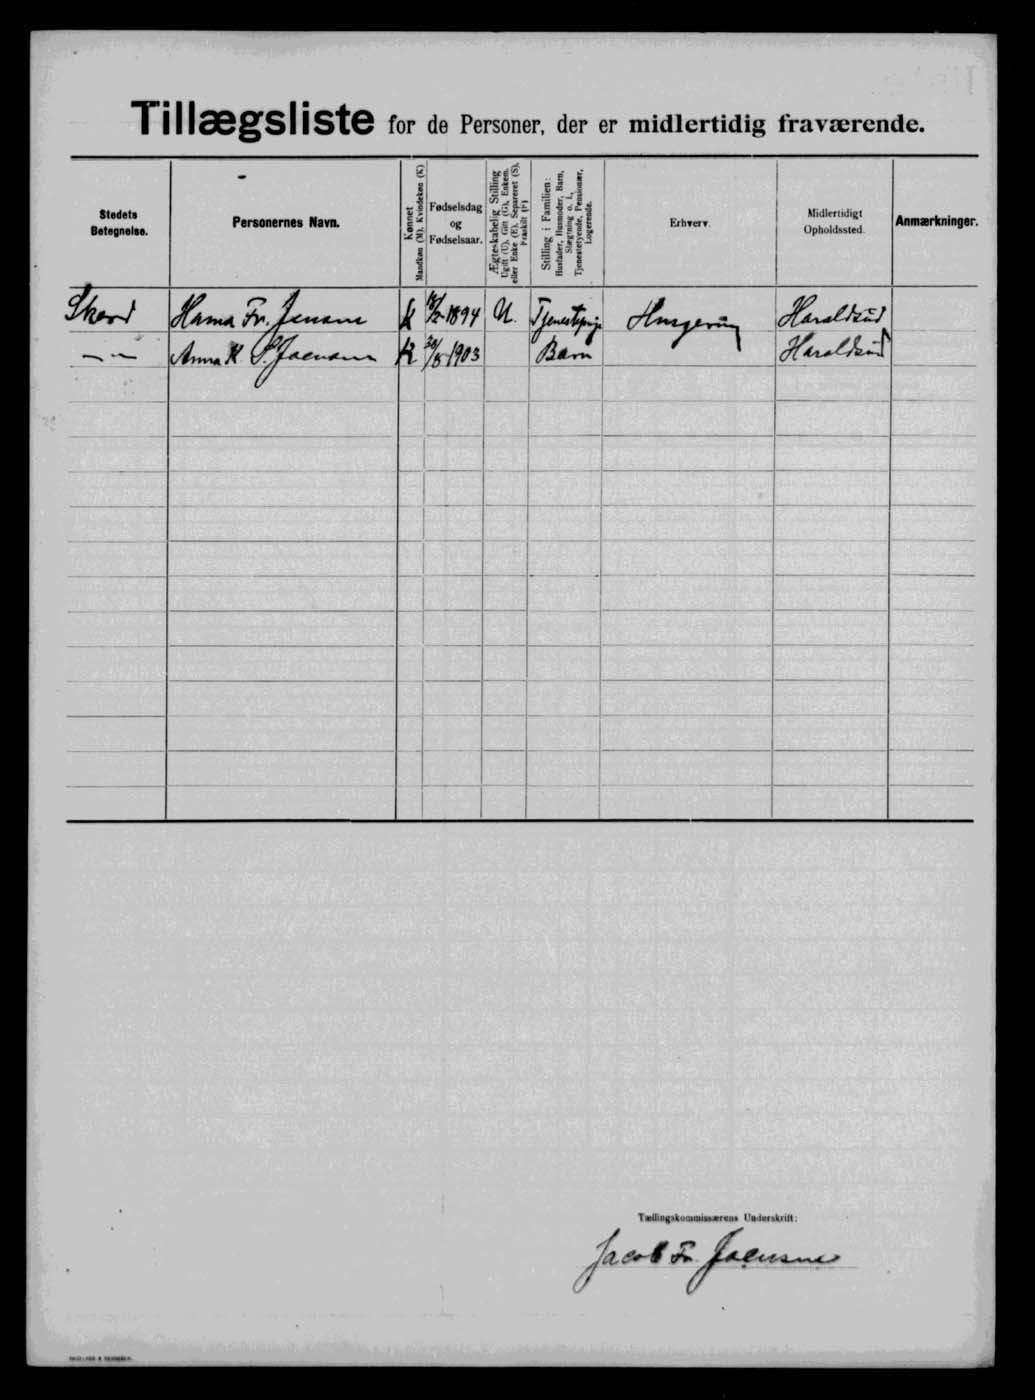 Tillægsliste for de Personer, der er midlertidig fraværende.
Stedets Betegnelse.
Personernes Navn.
Kønnet
Mandkøn (M). Kvindekøn (K)
Fødselsdag
og
Fødselsaar.
Ægteskabelig Stilling
Ugift (U), Gift (G), Enkem.
eller Enke (E), Separeret (S),
Fraskilt (F)
Stilling i Familien:
Husfader, Husmoder, Barn,
Slægtning o. l.,
Tjenestetyende, Pensionær,
Logerende.
Erhverv.
Midlertidigt
Opholdssted.
Anmærkninger.
Hanna Fr. K 1894 U. Tjenestepige Haraldsund
— " — Anna K. S. Joensen K 1903 Barn Haraldsund
Tællingskommissærens Underskrift:
Jacob Fr. Joensen